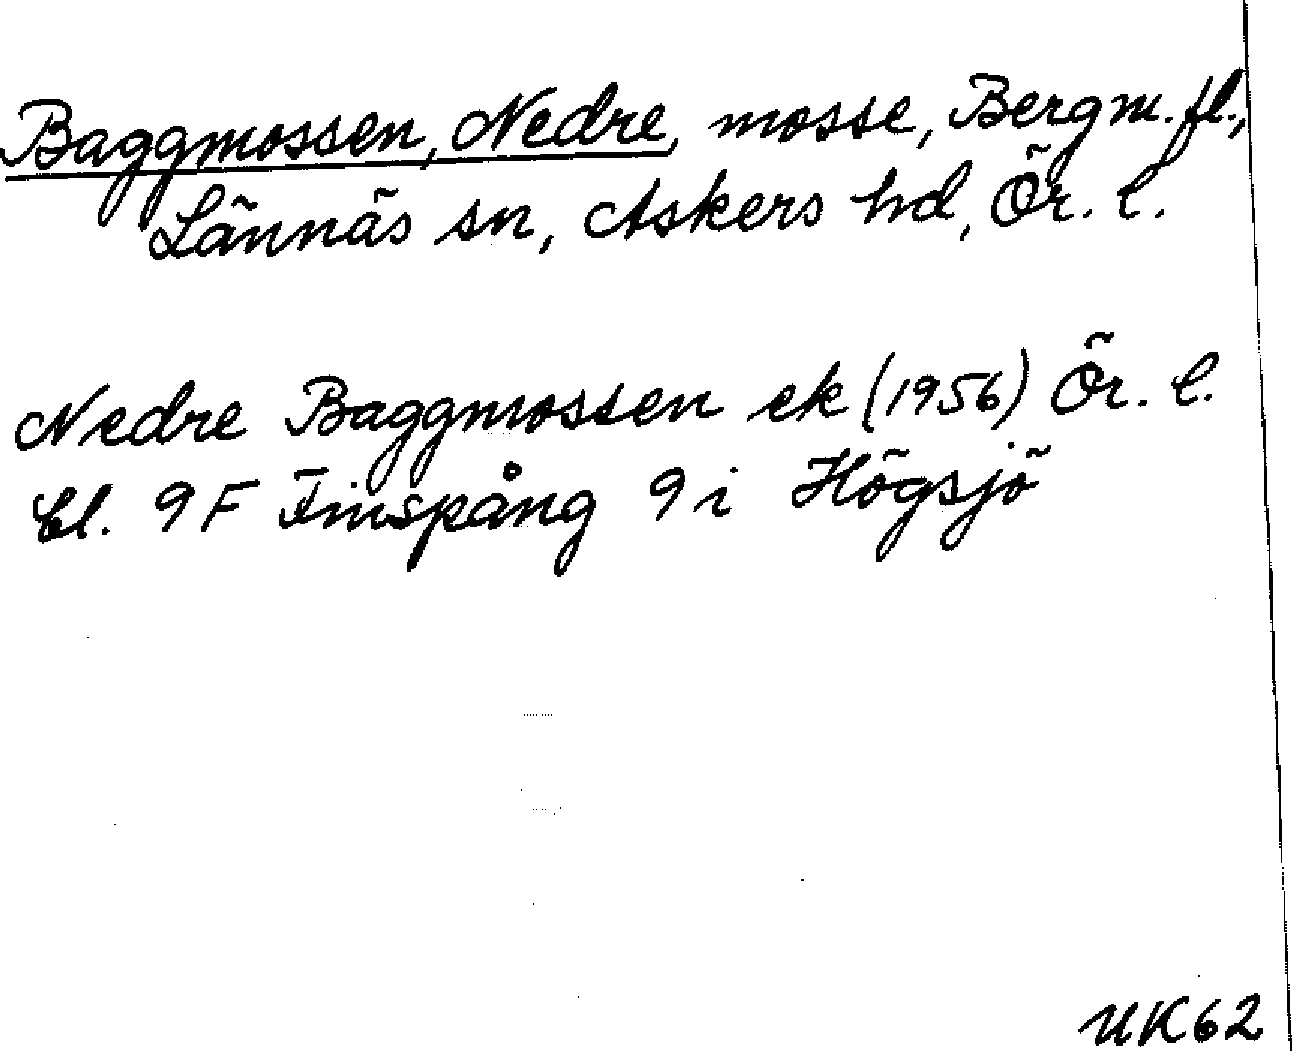 Baggmossen, Nedre, mosse, Bergm. fl.,
Lännäs sn, Askers hd, Ör. l.
Nedre Baggmossen ek (1956) Ör. l.
bl. 9F Finspång 9i Högsjö
UK62